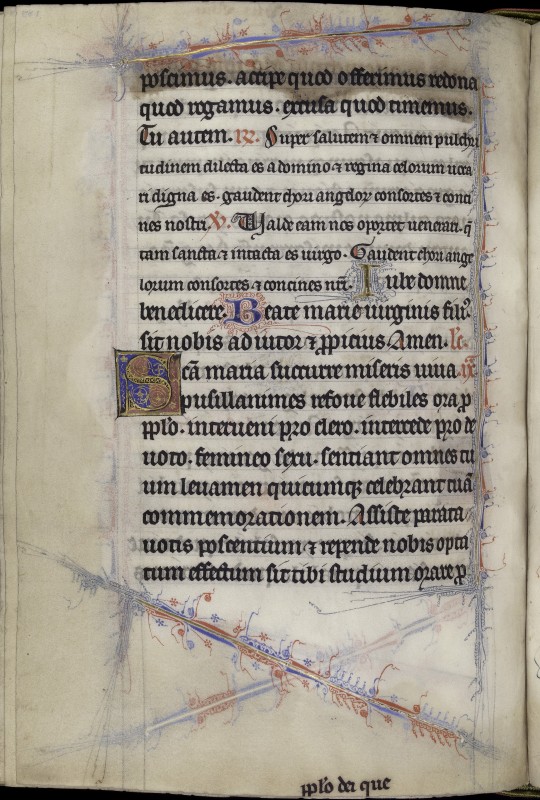 poscimus. accipe quod offerimus redona
quod rogamus. excusa quod timemus.
Tu autem. R. Super salutem ⁊ omnem pulchri
tudinem dilecta es a domino ⁊ regina celorum uoca
ri digna es. gaudent chori angeloꝝ consortes ⁊ conci
ues nostri. V. Ualde eam nos oportet uenerari. q̄
tam sancta ⁊ intacta es uirgo. Gaudent chori ange
lorum consortes. ⁊ conciues nr̄i. Iube domne
benedicere. Beate marie uirginis fili᷒
sit nobis adiutor ⁊ ꝓpicius. Amen. lc̄.
Sc̄a maria succurre miseris iuua ix.
pusillanimes refoue flebiles ora ꝓ
pplo. interueni pro clero. intercede pro de
uoto. femineo sexu. sentiant omnes tu
um leuamen quicumqꝫ celebrant tuā
commemorationem. Assiste parata
uotis poscentium ⁊ repende nobis opta
tum effectum sit tibi studium orare ꝓ
pplo dei que